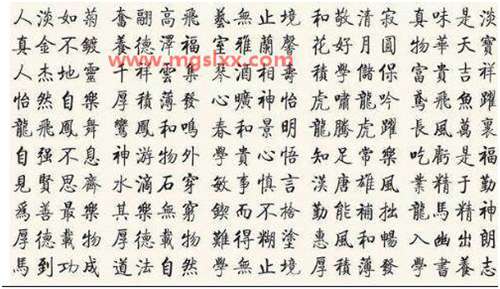 人淡如菊 奮翮高飛 藝無止境 和敬清寂 真味是淡
真金不鍍 養德澤福 室雅蘭馨 花好月圓 物華天寶
人杰地靈 千祥雲集 相壽 積學儲保 富貴吉祥
www.mgslxx.com
怡然自樂 厚積薄發 心曠神怡 虎嘯龍吟 鳶飛魚躍
龍飛鳳舞 鸞鳳和鳴 春和景明 龍騰虎躍 長風萬裏
自强不息 神游物外 學貴心悟 知足常樂 吃虧是福
見賢思齊 水滴石穿 敏事慎言 漢唐雄風 業精于勤
爲善最樂 其樂無窮 鍥而不捨 勤能補拙 龍馬精神
厚德載物 厚德載物 難得糊塗 惠風和暢 入幽出朗
馬到功成 道法自然 學無止境 厚積薄發 學書養志